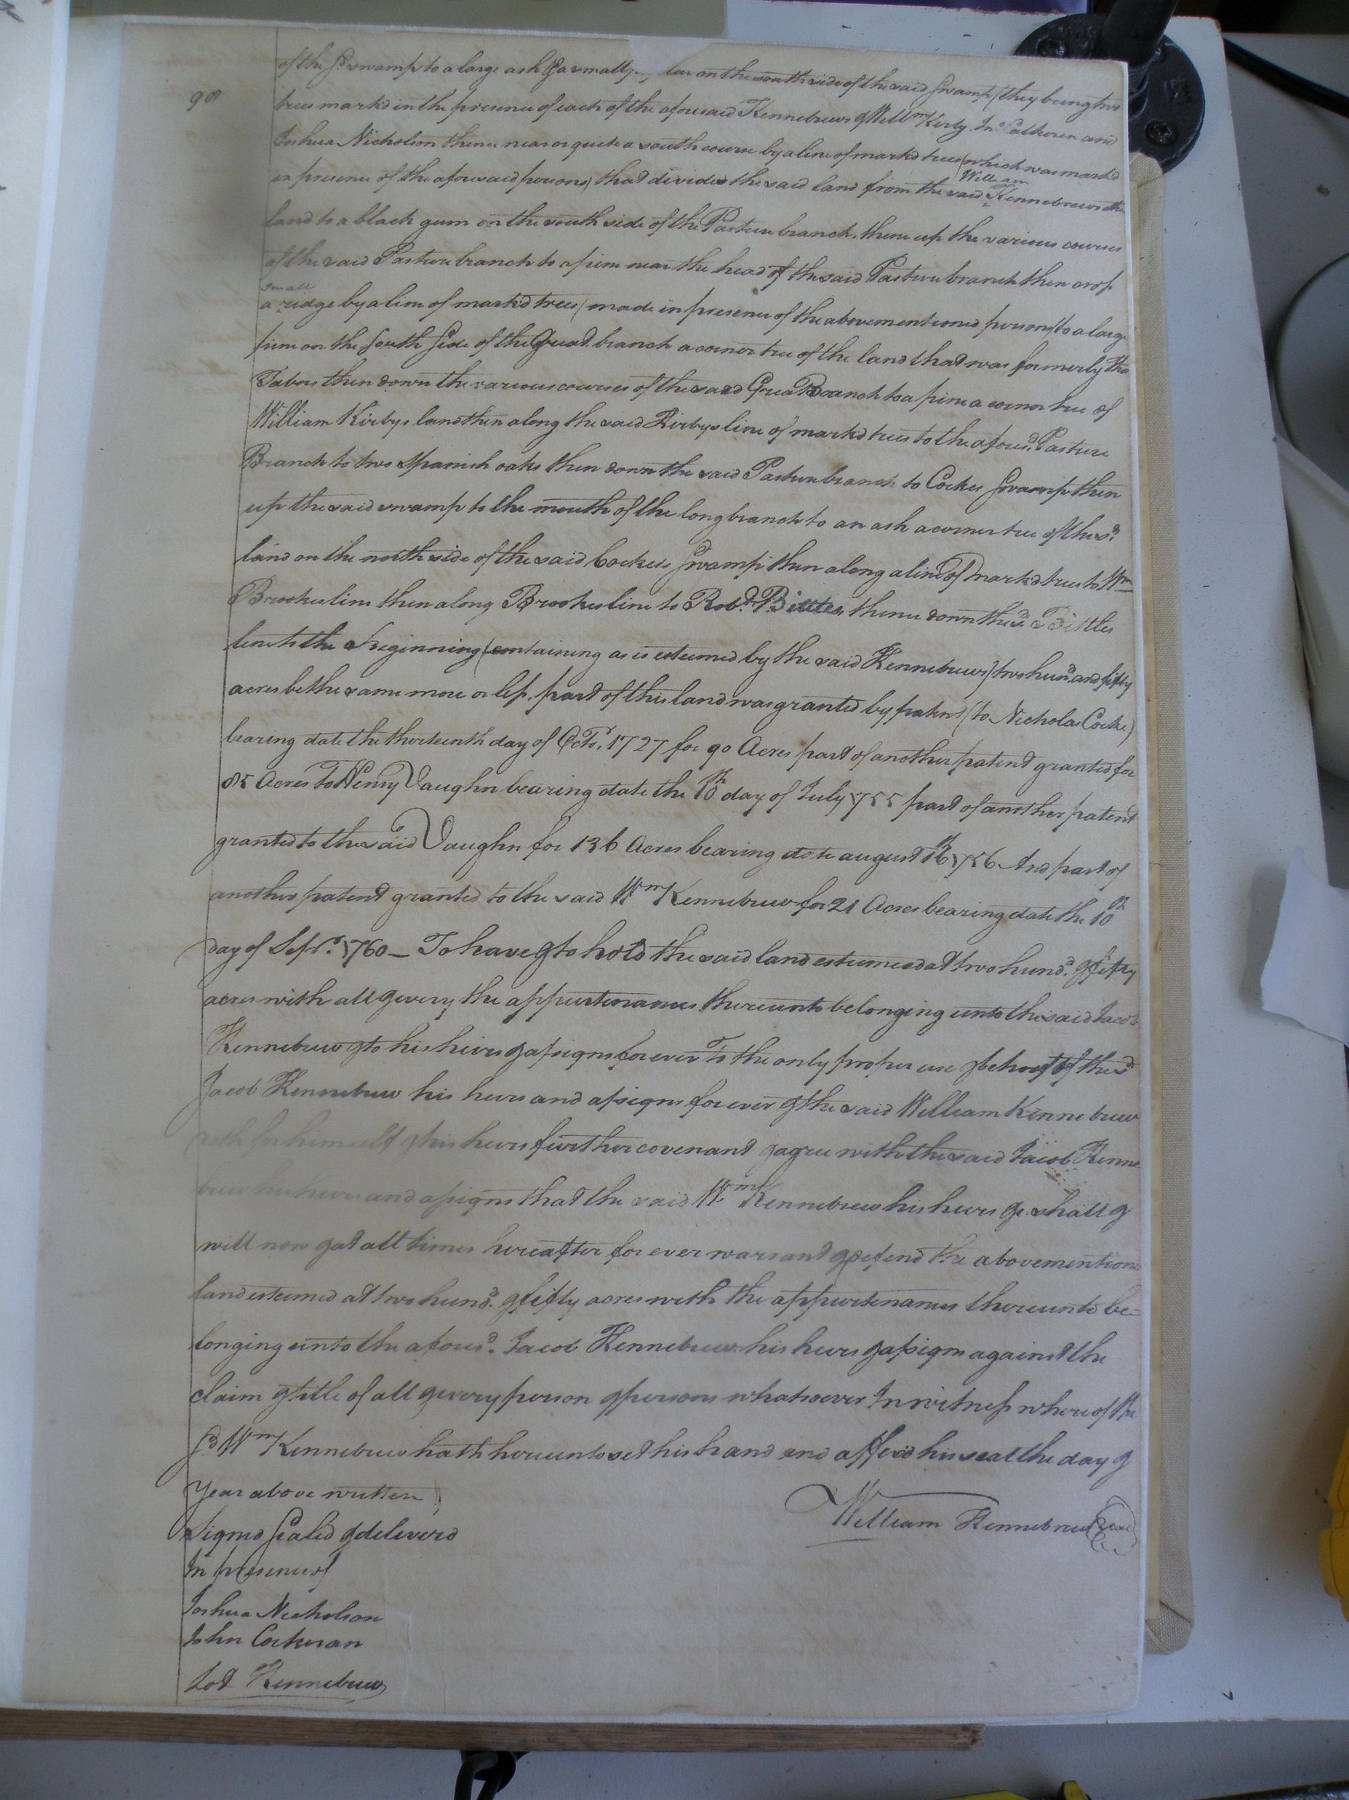 90
of the sd swamp to a large ash & a small on the south side of the said swamp (they being two
trees markd in the presence of each of the aforesaid Kennebrews & Willm Kirby, Jno Calhoun and
Joshua Nicholson thence near or quite a south course by a line of markd trees (which was markd
in presence of the aforesaid persons) that divides the said land from the said William Kennebrews other
land to a black gum on the south side of the Pasture branch, thence up the various courses
of the said Pasture branch to a pine near the head of the said Pasture branch then cross
a small ridge by a line of markd trees (made in presence of the abovementioned persons) to a large
pine on the South Side of the Great branch a corner tree of the land that was formerly Tho
Tabors then down the various courses of the said Great Branch to a pine a corner tree of
William Kirbys land then along the said Kirbys line of markd trees to the aforesd Pasture
Branch to two Spanish oaks then down the said Pasture branch to Cockes Swamp then
up the said swamp to the mouth of the long branch to an ash a corner tree of the sd
land on the north side of the said Cockes Swamp then along a line of markd trees to Wm
Brookes line then along Brookes line to Robt Bittles thence down the sd Bittles
line to the Beginning (containing as is esteemed by the said Kennebrews) two hund and fifty
acres be the same more or less. part of this land was granted by patent (to Nicholas Cocke)
bearing date the thirteenth day of Octr. 1727 for 90 Acres part of another patent granted for
85 Acres To Henry Vaughn bearing date the 10th day of July 1755 part of another patent
granted to the said Vaughn for 136 Acres bearing date august 16th 1756 And part of
another patent granted to the said Wm Kennebrew for 21 Acres bearing date the 10th
day of Septr. 1760 — To have & to hold the said land esteemed at two hund. & fifty
acres with all & every the appurtenances thereunto belonging unto the said Jacob
Kennebrew & to his heirs & assigns for ever To the only proper use & behoof of the sd
Jacob Kennebrew his heirs and assigns for ever & the said William Kennebrew
doth for himself & his heirs further covenant & agree with the said Jacob Kenne
brew his heirs and assigns that the said Wm Kennebrew his heirs &c shall &
will now & at all times hereafter for ever warrant & defend the abovementiond
land esteemed at two hund. & fifty acres with the appurtenances thereunto be-
longing unto the aforesd. Jacob Kennebrew his heirs & assigns against the
claim & title of all & every person & persons whatsoever In witness where of the
sd Wm Kennebrew hath hereunto set his hand and affixd his seal the day &
Year above written
Signed Sealed & deliverd
In presence of
William Kennebrew Seal
Joshua Nicholson
John Cockeran
Lot Kennebrew